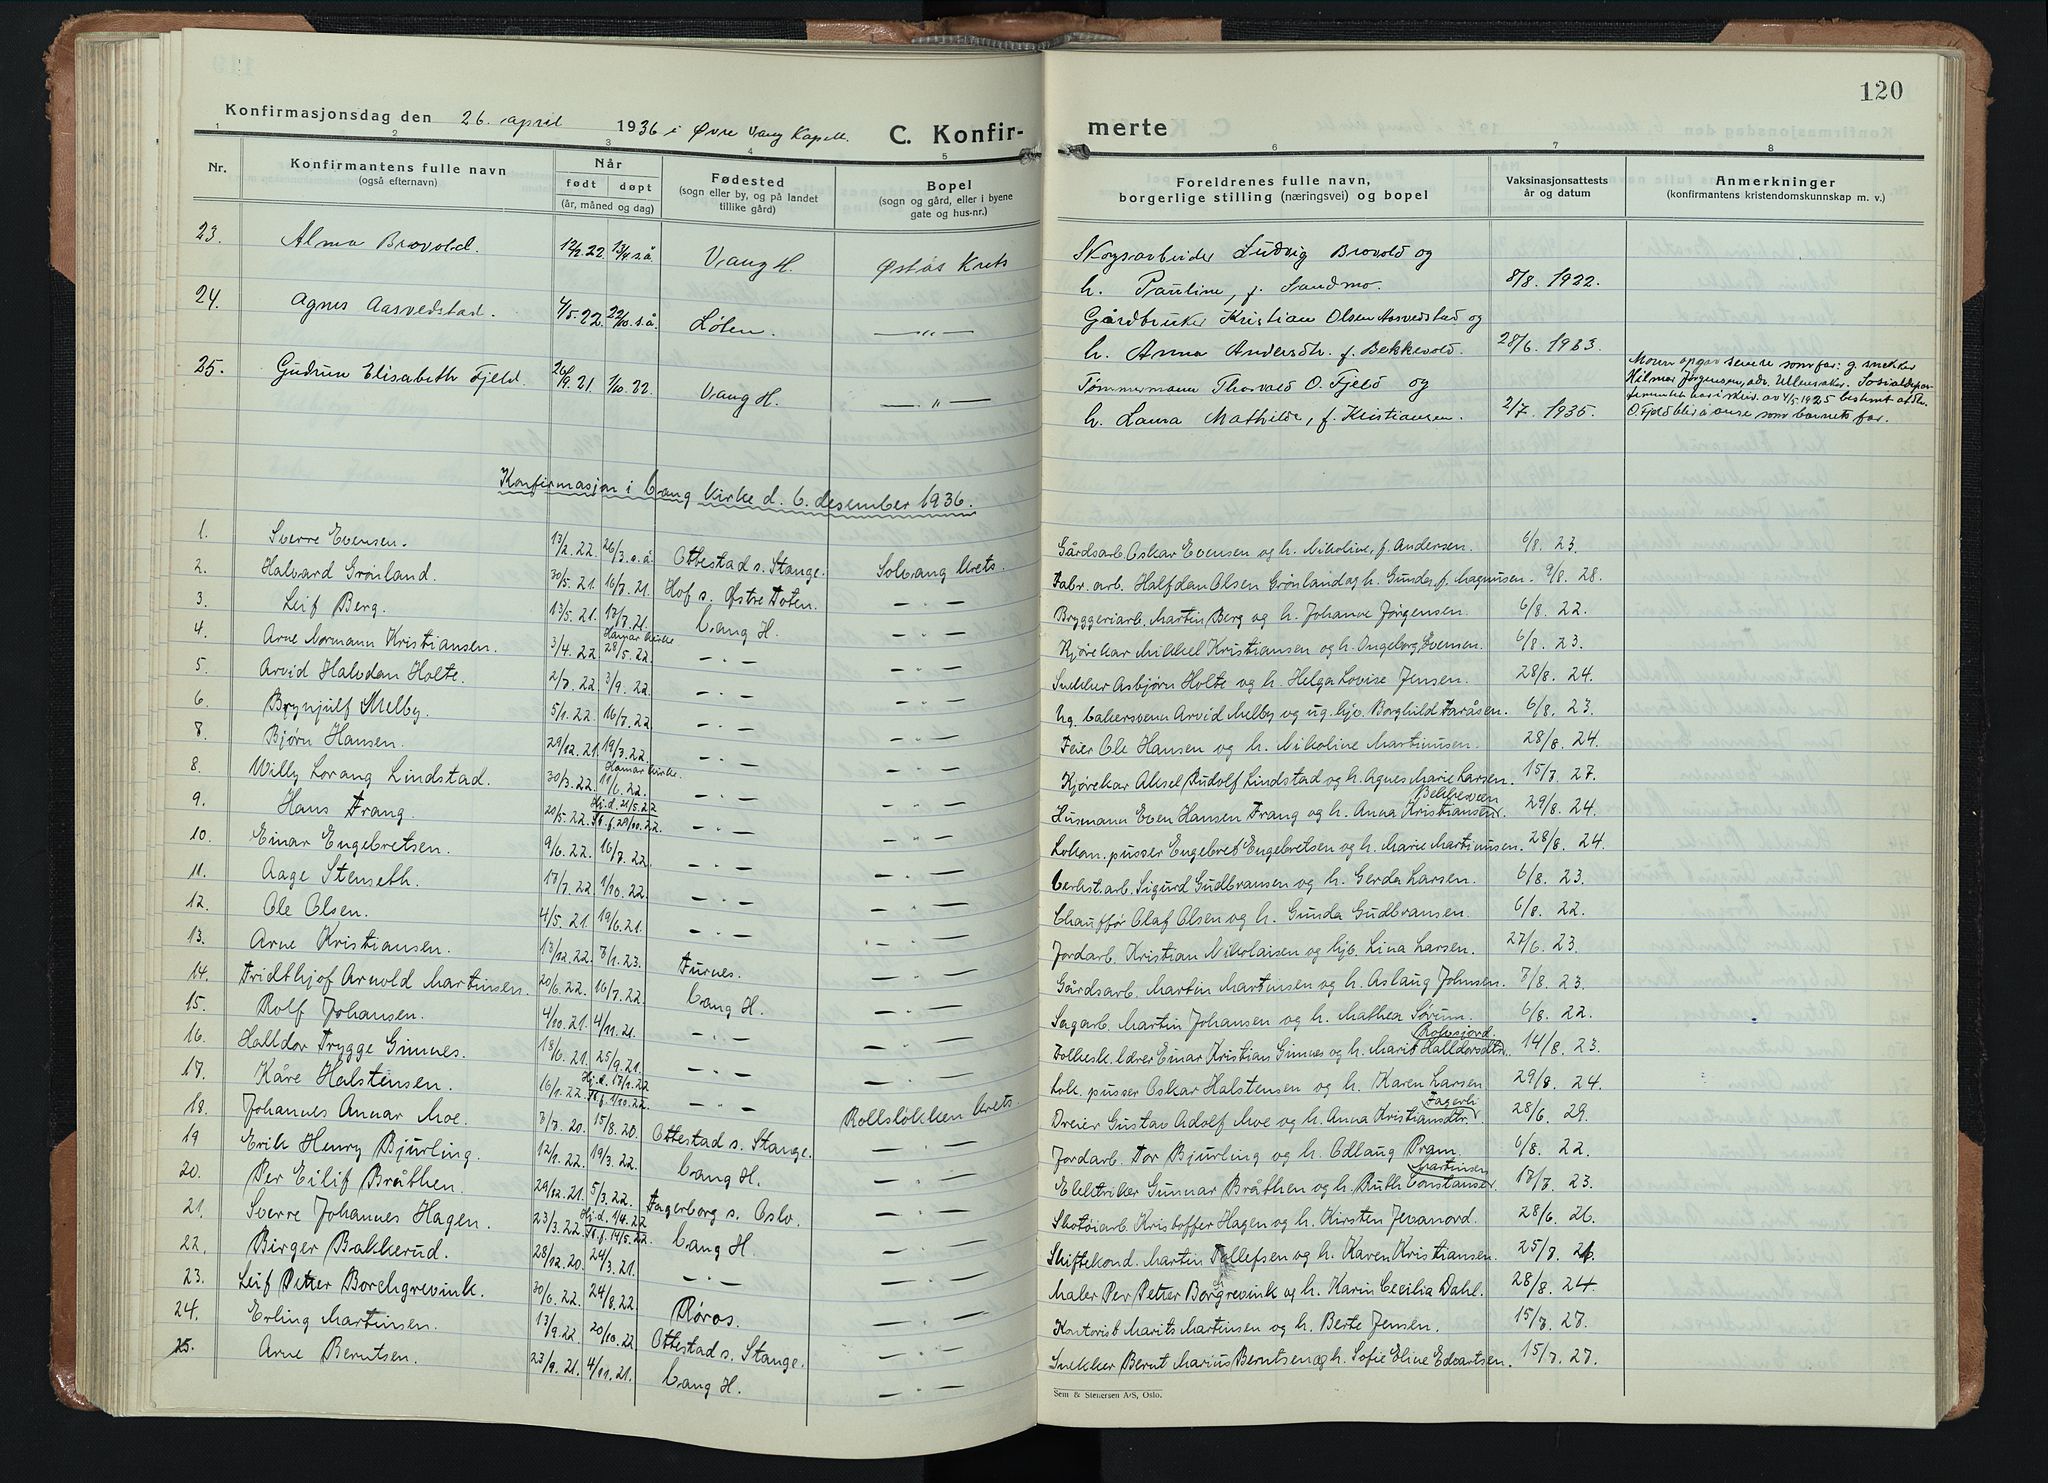 120
Konfirmasjonsdag den 26. april 1936 i Øvre Vang Kapell.
C. Konfir- merte
1 2 3 4 5 6 7 8
Nr.
Konfirmantens fulle navn
(også efternavn)
Når
født døpt
(år, måned og dag)
Fødested
(sogn eller by, og på landet
tillike gård)
Bopel
(sogn og gård, eller i byene
gate og hus-nr.)
Foreldrenes fulle navn,
borgerlige stilling (næringsvei) og bopel
Vaksinasjonsattests
år og datum
Anmerkninger
(konfirmantens kristendomskunnskap m. v.)
23. Alma Brovold. 12/2 22 13/4 s.å. Vang H. Østås Krets Skogsarbeider Ludvig Brovold og
h. Pauline, f. Sandmo. 8/8. 1922.
24. Agnes Aasvedstad. 4/5. 22 22/10. s.å. Løten. — " — Gårdbruker Kristian Olsen Aasvedstad og
h. Anna Andersdtr. f. Bekkevold. 28/6. 1933.
25. Gudrun Elisabeth Fjeld. 26/9. 21. 1/10. 22. Vang H. — " — Tømmermann Thorvald O. Fjeld og
h. Laura Mathilde, f. Kristiansen. 2/7. 1935.
Moren opgav senere som far: g. snekker
Hilmar Jørgensen, adr. Ullensaker. Sosialdepar-
tementet har i skriv. av 4/5. 1925 bestemt at Th.
O. Fjeld blir å anse som barnets far.
Konfirmasjon i Vang kirke d. 6. desember 1936.
1. Sverre Evensen. 13/2. 22. 26/3. s.å. Ottestad s. Stange. Solvang krets. Gårdsarb. Oskar Evensen og h. Nikoline, f. Andersen. 6/8. 23.
2. Halvard Grønland. 30/5. 21. 16/7. 21. Hof s. Østre Toten. — " — Fabr. arb. Halfdan Olsen Grønland og h. Gunda, f. Magnusen. 9/8. 28.
3. Leif Berg. 13/5. 21. 17/7. 21. Vang H. — " — Bryggeriarb. Martin Berg og h. Johanne Jørgensen. 6/8. 22.
4. Arne Normann Kristiansen. 3/4. 22 Hamar kirke 28/5. 22. — " — — " — Kjørekar Mikkel Kristiansen og h. Ingeborg Evensen. 6/8. 23.
5. Arvid Halvdan Holte. 2/7. 22. 3/9. 22. — " — — " — Snekker Asbjørn Holte og h. Helga Lovise Jensen. 28/8. 24.
6. Brynjulf Melby. 5/1. 22. 16/7. 22 — " — — " — Ug. bakersvenn Arvid Melby og ug. hjv. Borghild Faråsen. 6/8. 23.
8. Bjørn Hansen. 29/12. 21. 19/3. 22. — " — — " — Feier Ole Hansen og h. Nikoline Martinusen. 28/8. 24.
8. Willy Lorang Lindstad. 30/3. 22. Hamar kirke 11/6. 22. — " — — " — Kjørekar Aksel Rudolf Lindstad og h. Agnes Marie Larsen. 15/7. 27.
9. Hans Frang. 20/5. 22. Hj.d. 21/5. 22 St. f. 29/10. 22. — " — — " — Husmann Even Hansen Frang og h. Anna Kristiansen. Bekkesveen 29/8. 24.
10. Einar Engebretsen. 9/6. 22. 16/7. 22. — " — — " — Lokom. pusser Engebret Engebretsen og h. Marie Martinusen. 28/8. 24.
11. Aage Stenseth. 17/7. 22. 1/10. 22. — " — — " — Verkst. arb. Sigurd Gudbransen og h. Gerda Larsen. 6/8. 23.
12. Ole Olsen. 4/5. 21. 19/6. 21. — " — — " — Chauffør Olaf Olsen og h. Gunda Gudbransen. 6/8. 22.
13. Arne Kristiansen. 13/12. 22. 7/1. 23. Furnes. — " — Jordarb. Kristian Nikolaisen og hjv. Lina Larsen. 27/6. 23.
14. Fridthjof Arnold Martinsen. 20/6. 22. 16/7. 22. Vang H. — " — Gårdsarb. Martin Martinsen og h. Aslaug Johnsen. 7/8. 23.
15. Rolf Johansen. 4/10. 21. 4/11. 21. — " — — " — Sagarb. Martin Johansen og h. Mathea Sørum. 6/8. 22.
16. Halldor Trygge Gimnes. 18/6. 21. 25/9. 21. — " — — " — Folkesk. lærer Einar Kristian Gimnes og h. Marit Halldorsdtr. 14/8. 23.
17. Kåre Halstensen. 16/1. 22. Hj.d. 17/1. 22 St. f. 1/10. 22. — " — — " — Lok. pusser Oskar Halstensen og h. Karen Larsen 29/8. 24.
18. Johannes Annar Moe. 3/7. 20. 15/8. 20. Ottestad s. Stange. Rollsløkken krets Dreier Gustav Adolf Moe og h. Anna Kristiansdtr. Fagerli 28/6. 29.
19 Erik Henry Bjurling. 12/1. 22. 19/3. 22. Vang H. — " — Jordarb. Tor Bjurling og h. Odlaug Pram. 6/8. 22.
20. Per Eilif Bråthen. 29/12. 21. 5/3. 22. Fagerborg s. Oslo. — " — Elektriker Gunnar Bråthen og h. Ruth Constanse. Martinsen 17/7. 23.
21. Sverre Johannes Hagen. 23/3. 22. Hj.d. 1/4. 22 St. f. 14/5. 22. Vang H. — " — Skotøiarb. Kristoffer Hagen og h. Kirsten Jevanord. 28/6. 26.
22. Birger Bakkerud. 28/12. 20. 24/3. 21. — " — — " — Skiftekond. Martin Tollefsen og h. Karen Kristiansen. 25/7. 21.
23. Leif Petter Borchgrevink. 30/6. 22. 24/8. 22. Røros. — " — Maler Per Petter Borgrevink og h. Karin Cecilia Dahl. 28/8. 24
24. Erling Martinsen. 13/9. 22. 20/10. 22 Ottestad s. Stange. — " — Kontorist Marits Martinsen og h. Berte Jensen. 15/7. 27.
25. Arne Berntsen. 23/9. 21. 4/11. 21. Vang H. — " — Snekker Bernt Marius Berntsen og h. Sofie Eline Edvartsen. 15/7. 27.
Sem & Stenersen A/S, Oslo.